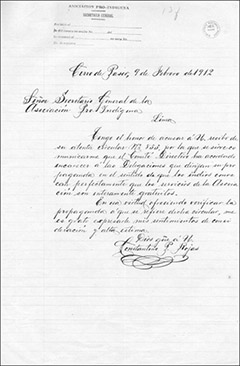 ASOCIACION PRO-INDIGENA
SECRETARIA GENERAL
Cerro de Pasco, 9 de Febrero de 1912
Señor Secretario General de la
Asociación Pro-Indígena
Lima.
Tengo el honor de acusar á U. recibo de
su atenta circular Nº 133, por la que se sirve co-
municarme que el Comité Directivo ha acordado
encarecer á las Delegaciones que dirijan su pro-
paganda en el sentido de que los indios conoz-
can perfectamente que los servicios de la Asocia-
ción son enteramente gratuitos.
En su virtud, ofreciendo verificar la
propaganda á que se refiere dicha circular, me
es grato expresarle mis sentimientos de consi-
deración y alta estima.
Dios gũe á U.
Rojas